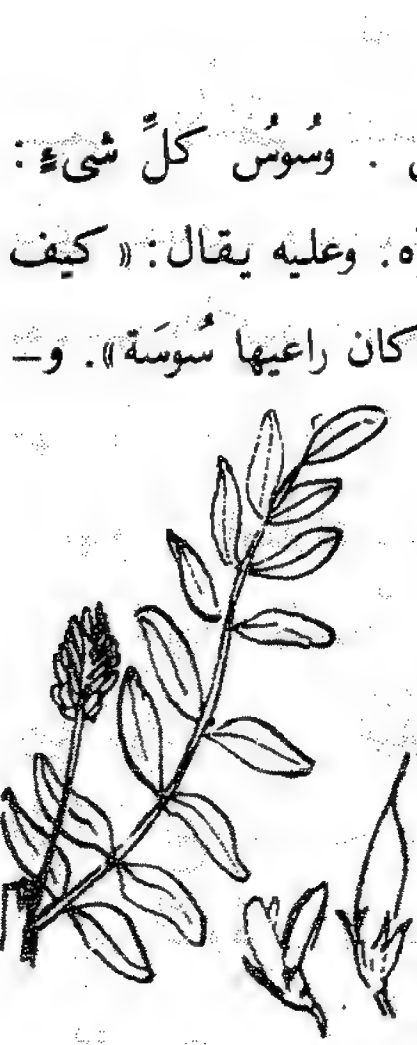 . وسُوسُ كلِّ شىءٍ :
. وعليه يقال : « كيف
كان راعيها سُوسَة » . و —